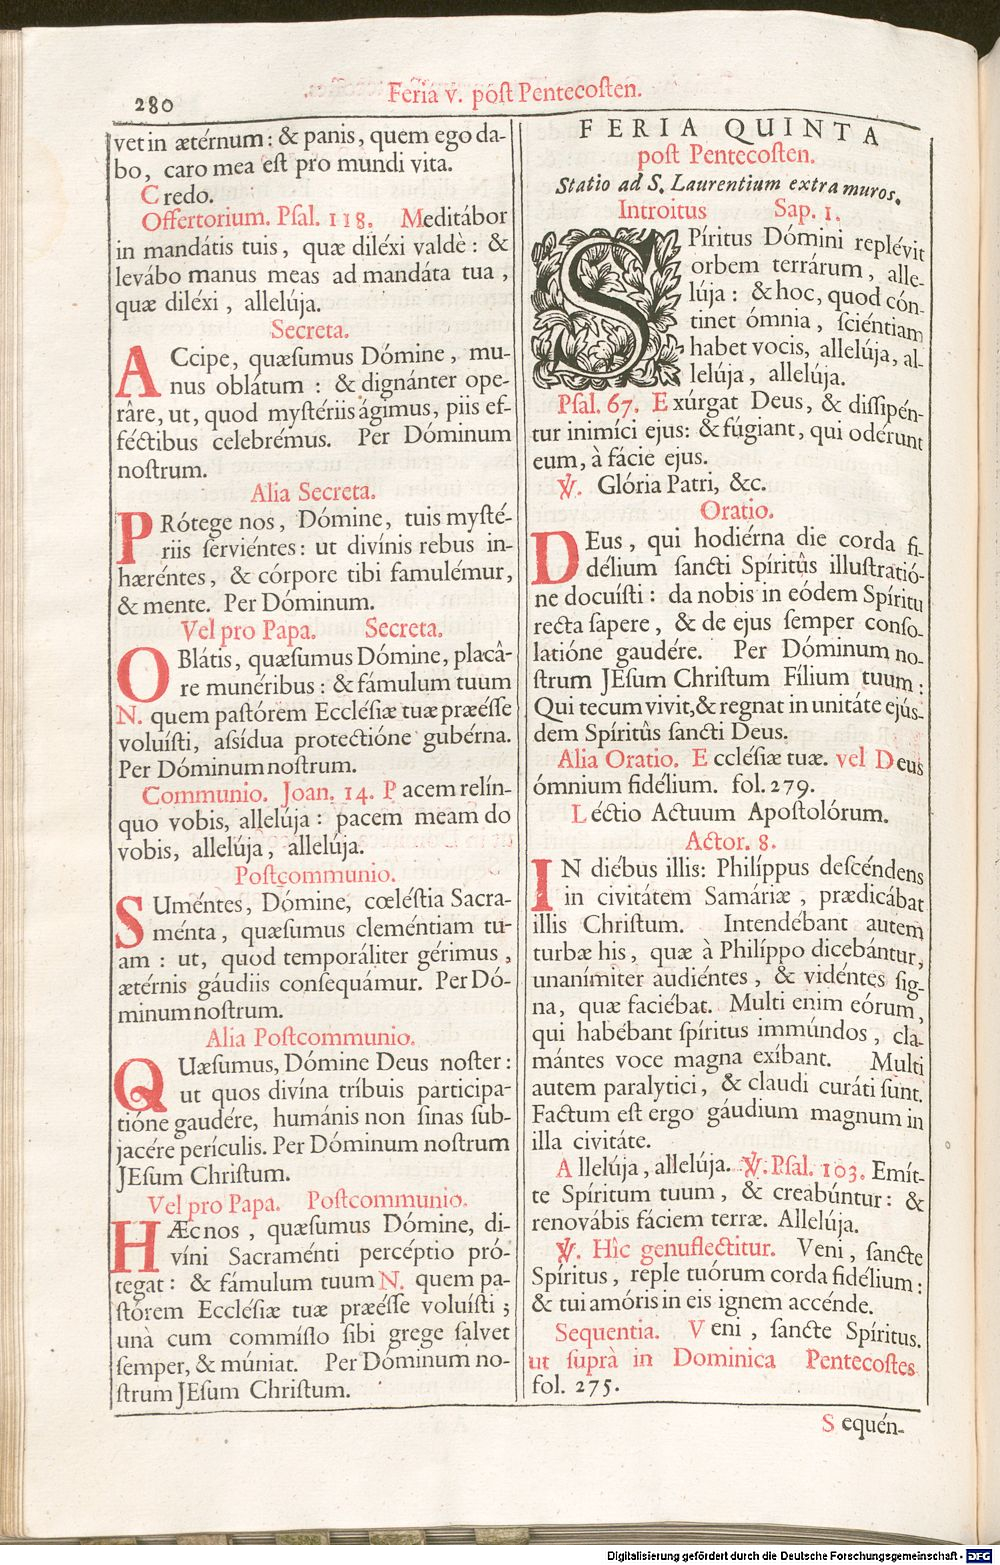 280
Feria v. post Pentecosten.
vet in ætérnum: & panis, quem ego da-
bo, caro mea est pro mundi vita.
Credo.
Offertorium. Psal. 118. Meditábor
in mandátis tuis, quæ diléxi valdè: &
levábo manus meas ad mandáta tua,
quæ diléxi, allelúja.
Secreta.
ACcipe, quæsumus Dómine, mu-
nus oblátum: & dignánter ope-
râre, ut, quod mystériis ágimus, piis ef-
féctibus celebrémus. Per Dóminum
nostrum.
Alia Secreta.
PRótege nos, Dómine, tuis mysté-
riis serviéntes: ut divínis rebus in-
hæréntes, & córpore tibi famulémur,
& mente. Per Dóminum.
Vel pro Papa. Secreta.
OBlátis, quæsumus Dómine, placâ-
re munéribus: & fámulum tuum
N. quem pastórem Ecclésiæ tuæ præésse
voluísti, assídua protectióne gubérna.
Per Dóminum nostrum.
Communio. Joan. 14. Pacem relín-
quo vobis, allelúja: pacem meam do
vobis, allelúja, allelúja.
Postcommunio.
SUméntes, Dómine, cœléstia Sacra-
ménta, quæsumus cleméntiam tu-
am: ut, quod temporáliter gérimus,
ætérnis gáudiis consequámur. Per Dó-
minum nostrum.
Alia Postcommunio.
QUæsumus, Dómine Deus noster:
ut quos divína tríbuis participa-
tióne gaudére, humánis non sinas sub-
jacére perículis. Per Dóminum nostrum
JEsum Christum.
Vel pro Papa. Postcommunio.
HÆc nos, quæsumus Dómine, di-
víni Sacraménti percéptio pró-
tegat: & fámulum tuum N. quem pa-
stórem Ecclésiæ tuæ præésse voluísti;
unà cum commísso sibi grege salvet
semper, & múniat. Per Dóminum no-
strum JEsum Christum.
FERIA QUINTA
post Pentecosten.
Statio ad S. Laurentium extra muros.
Introitus Sap. 1.
SPíritus Dómini replévit
orbem terrárum, alle-
lúja: & hoc, quod cón-
tinet ómnia, sciéntiam
habet vocis, allelúja, al-
lelúja, allelúja.
Psal. 67. Exúrgat Deus, & dissipén-
tur inimíci ejus: & fúgiant, qui odérunt
eum, à fácie ejus.
℣. Glória Patri, &c.
Oratio.
DEus, qui hodiérna die corda fi-
délium sancti Spíritûs illustratió-
ne docuísti: da nobis in eódem Spíritu
recta sapere, & de ejus semper conso-
latióne gaudére. Per Dóminum no-
strum JEsum Christum Fílium tuum:
Qui tecum vivit, & regnat in unitáte ejús-
dem Spíritûs sancti Deus.
Alia Oratio. Ecclésiæ tuæ. vel Deus
ómnium fidélium. fol. 279.
Léctio Actuum Apostolórum.
Actor. 8.
IN diébus illis: Philíppus descéndens
in civitátem Samáriæ, prædicábat
illis Christum. Intendébant autem
turbæ his, quæ à Philíppo dicebántur,
unanímiter audiéntes, & vidéntes sig-
na, quæ faciébat. Multi enim eórum,
qui habébant spíritus immúndos, cla-
mántes voce magna exíbant. Multi
autem paralytici, & claudi curáti sunt.
Factum est ergo gáudium magnum in
illa civitáte.
Allelúja, allelúja. ℣. Psal. 103. Emít-
te Spíritum tuum, & creabúntur: &
renovábis fáciem terræ. Allelúja.
℣. Hîc genuflectitur. Veni, sancte
Spíritus, reple tuórum corda fidélium:
& tui amóris in eis ignem accénde.
Sequentia. Veni, sancte Spíritus.
ut suprà in Dominica Pentecostes
fol. 275.
Sequén-
Digitalisierung gefördert durch die Deutsche Forschungsgemeinschaft - DFG